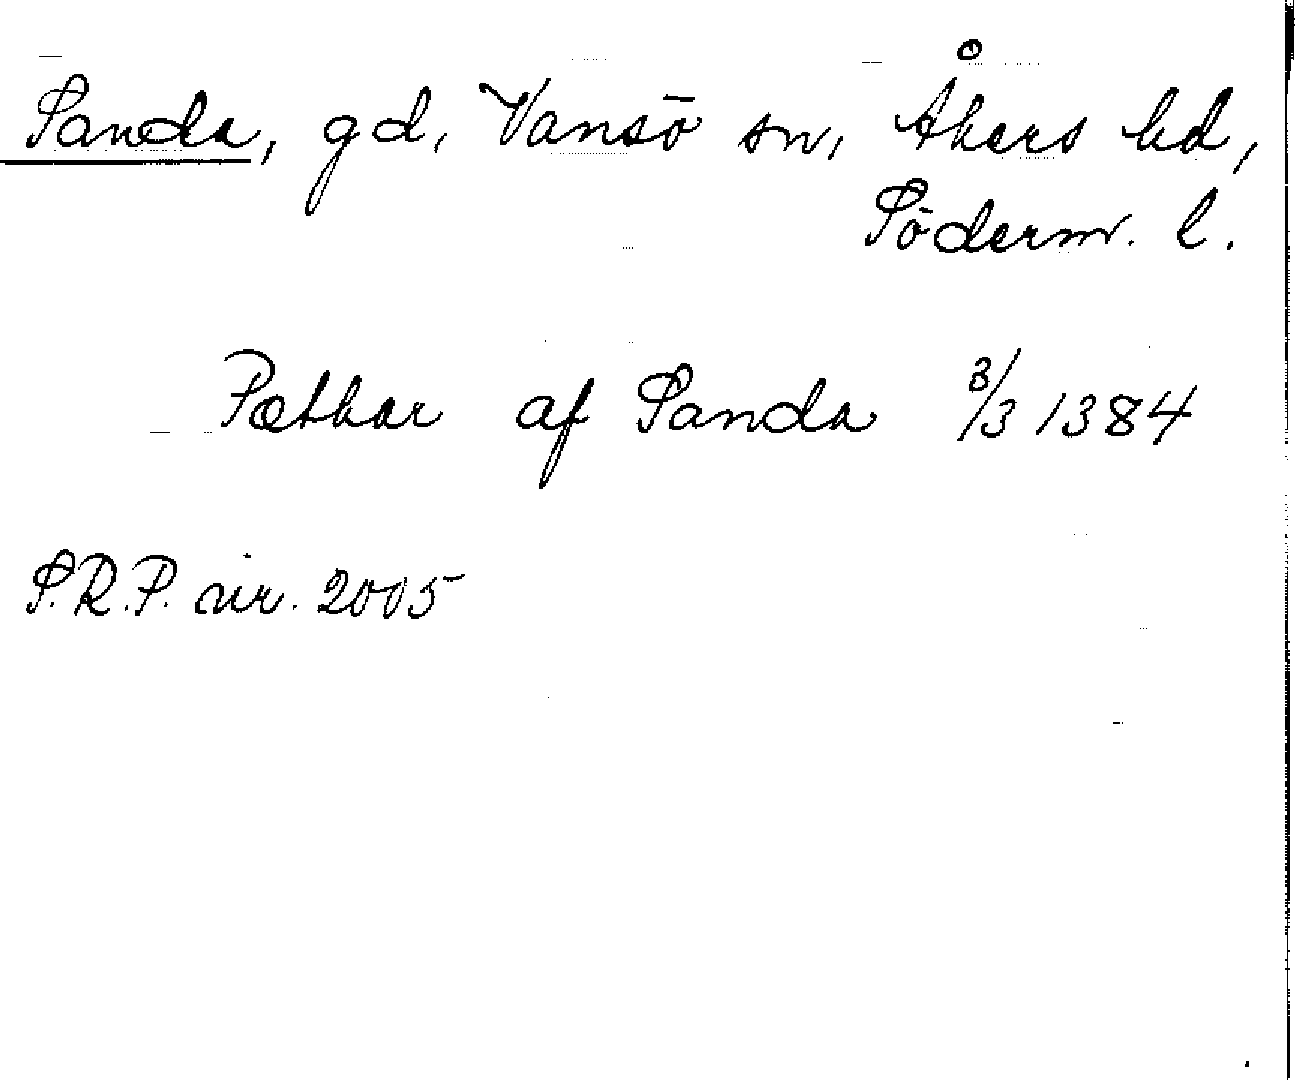 Sanda, gd, Vansö sn, Åkers hd,
Söderm. l.
Pæthar af Sanda 3/3 1384
S.R.P. nr. 2005